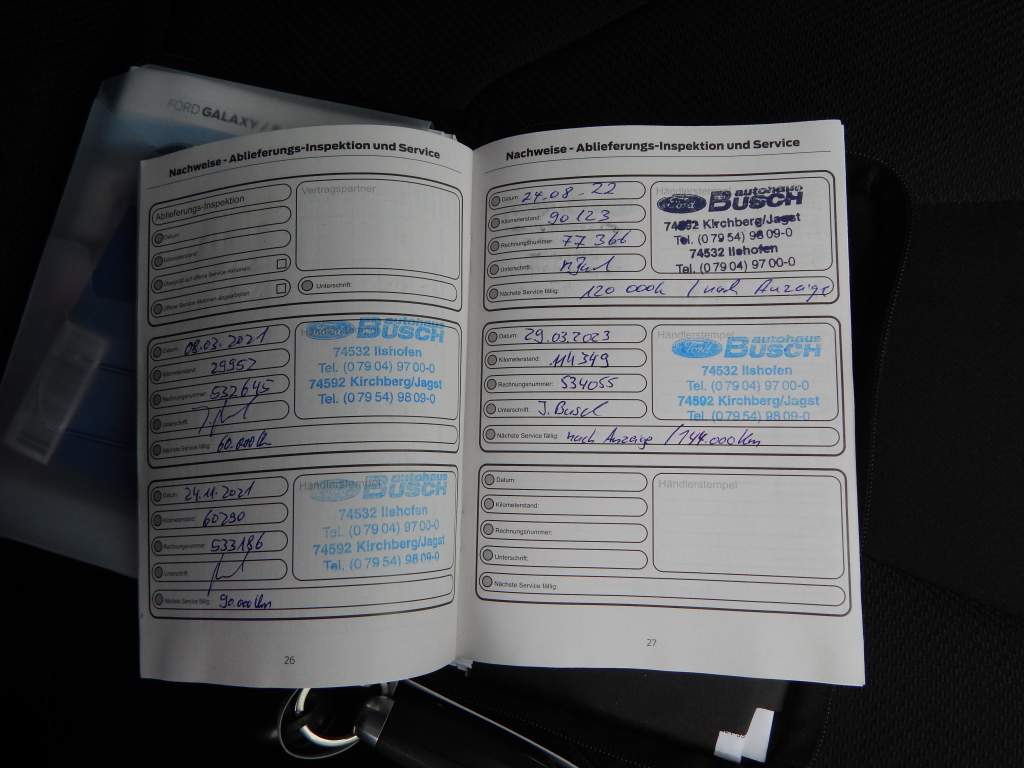 FORD GALAXY /
Nachweise - Ablieferungs-Inspektion und Service
Ablieferungs-Inspektion
Vertragspartner
Datum:
Kilometerstand:
Überprüft auf offene Service-Aktionen:
Offene Service-Aktionen abgearbeitet:
Unterschrift:
Datum: 08.03.2021
Kilometerstand: 29952
Rechnungsnummer: 532645
Unterschrift:
Nächste Service fällig: 60.000km
Händlerstempel
Ford autohaus
BUSCH
74532 Ilshofen
Tel. (0 79 04) 97 00-0
74592 Kirchberg/Jagst
Tel. (0 79 54) 98 09-0
Datum: 24.11.2021
Kilometerstand: 60290
Rechnungsnummer: 533186
Unterschrift:
Nächste Service fällig: 90.000km
Händlerstempel
Ford autohaus
BUSCH
74532 Ilshofen
Tel. (0 79 04) 97 00-0
74592 Kirchberg/Jagst
Tel. (0 79 54) 98 09-0
26
Nachweise - Ablieferungs-Inspektion und Service
Datum: 24.08.22
Kilometerstand: 90123
Rechnungsnummer: 77366
Unterschrift:
Nächste Service fällig: 120 000k / nach Anzeige
Händlerstempel
Ford autohaus
BUSCH
74592 Kirchberg/Jagst
Tel. (0 79 54) 98 09-0
74532 Ilshofen
Tel. (0 79 04) 97 00-0
Datum: 29.03.2023
Kilometerstand: 114349
Rechnungsnummer: 534055
Unterschrift: J. Busch
Nächste Service fällig: nach Anzeige / 144.000km
Händlerstempel
Ford autohaus
BUSCH
74532 Ilshofen
Tel. (0 79 04) 97 00-0
74592 Kirchberg/Jagst
Tel. (0 79 54) 98 09-0
Datum:
Kilometerstand:
Rechnungsnummer:
Unterschrift:
Nächste Service fällig:
Händlerstempel
27